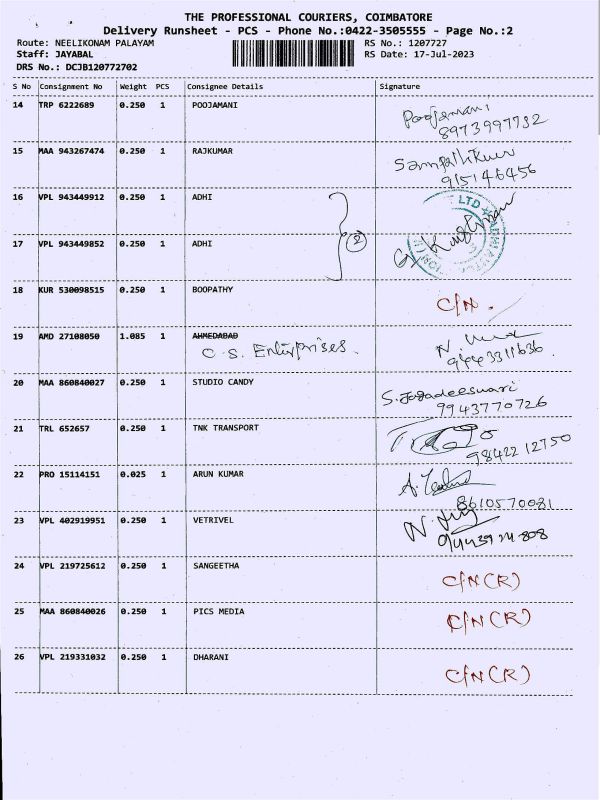 THE PROFESSIONAL COURIERS, COIMBATORE
Delivery Runsheet - PCS - Phone No.:0422-3505555 - Page No.:2
Route: NEELIKONAM PALAYAM RS No.: 1207727
Staff: JAYABAL RS Date: 17-Jul-2023
DRS No.: DCJB120772702
S No Consignment No Weight PCS Consignee Details Signature
14 TRP 6222689 0.250 1 POOJAMANI Poojamani
8973997732
15 MAA 943267474 0.250 1 RAJKUMAR
915146456
16 VPL 943449912 0.250 1 ADHI LTD
17 VPL 943449852 0.250 1 ADHI 2
18 KUR 530098515 0.250 1 BOOPATHY C/N.
19 AMD 27108050 1.085 1 AHMEDABAD
C.S. Enterprises. 9443311636.
20 MAA 860840027 0.250 1 STUDIO CANDY S. Jagadeeswari
9943770726
21 TRL 652657 0.250 1 TNK TRANSPORT
98422 12750
22 PRO 15114151 0.025 1 ARUN KUMAR
8610570081
23 VPL 402919951 0.250 1 VETRIVEL
24 VPL 219725612 0.250 1 SANGEETHA C/N(R)
25 MAA 860840026 0.250 1 PICS MEDIA C/N(R)
26 VPL 219331032 0.250 1 DHARANI C/N(R)